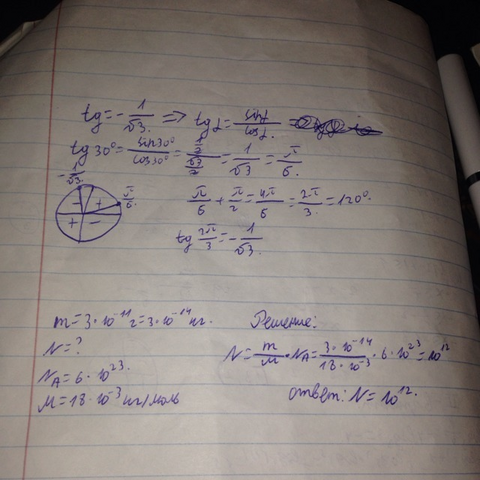 tg = -1/√3. => tg α = sin α/cos α.
tg 30° = sin30°/cos30° = (1/2)/(√3/2) = 1/√3 = π/6.
-1/√3 π/6.
+ + -
π/6 + π/2 = 4π/6 = 2π/3 = 120°.
tg 2π/3 = -1/√3.
m = 3·10⁻¹¹ г = 3·10⁻¹⁴ кг.
N = ?
N_A = 6·10²³.
M = 18·10⁻³ кг/моль
Решение:
N = m/M · N_A = 3·10⁻¹⁴/18·10⁻³ · 6·10²³ = 10¹²
ответ: N = 10¹².